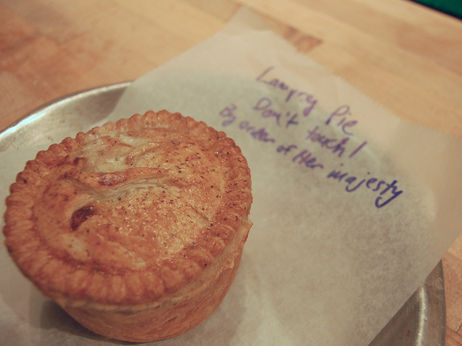 Lamprey Pie
Don't touch!
By order of Her majesty